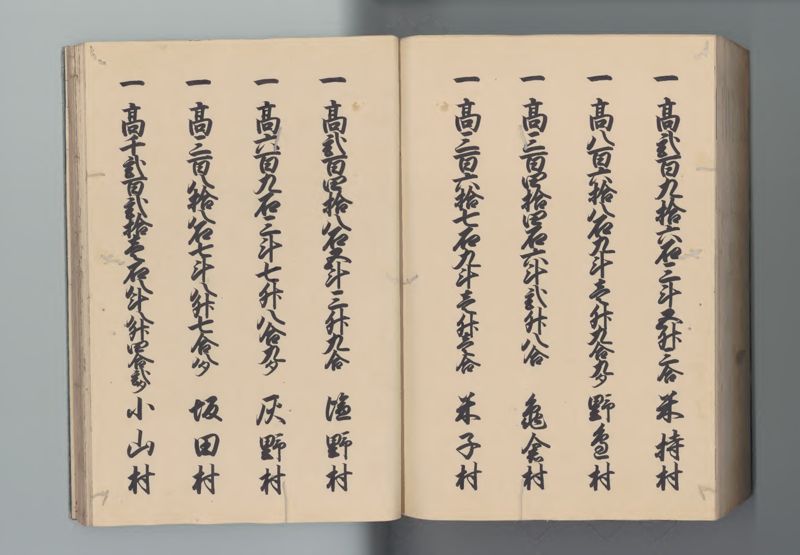 一 高弐百九拾六石三斗五升二合 米持村
一 高八百六拾八石九斗壱升九合九夕 野辺村
一 高三百四拾四石六斗弐升八合 亀倉村
一 高三百六拾七石九斗壱升壱合 米子村
一 高弐百四拾八石五斗三升九合 塩野村
一 高六百九石三斗七升八合九夕 灰野村
一 高三百八拾八石七斗八升七合八夕 坂田村
一 高千弐百弐拾壱石八斗八升四合弐夕 小山村